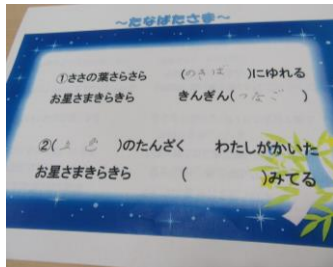 ～たなばたさま～
①ささの葉さらさら (のきば)にゆれる
お星さまきらきら きんぎん(つなご)
②( )のたんざく わたしがかいた
お星さまきらきら ( )みてる